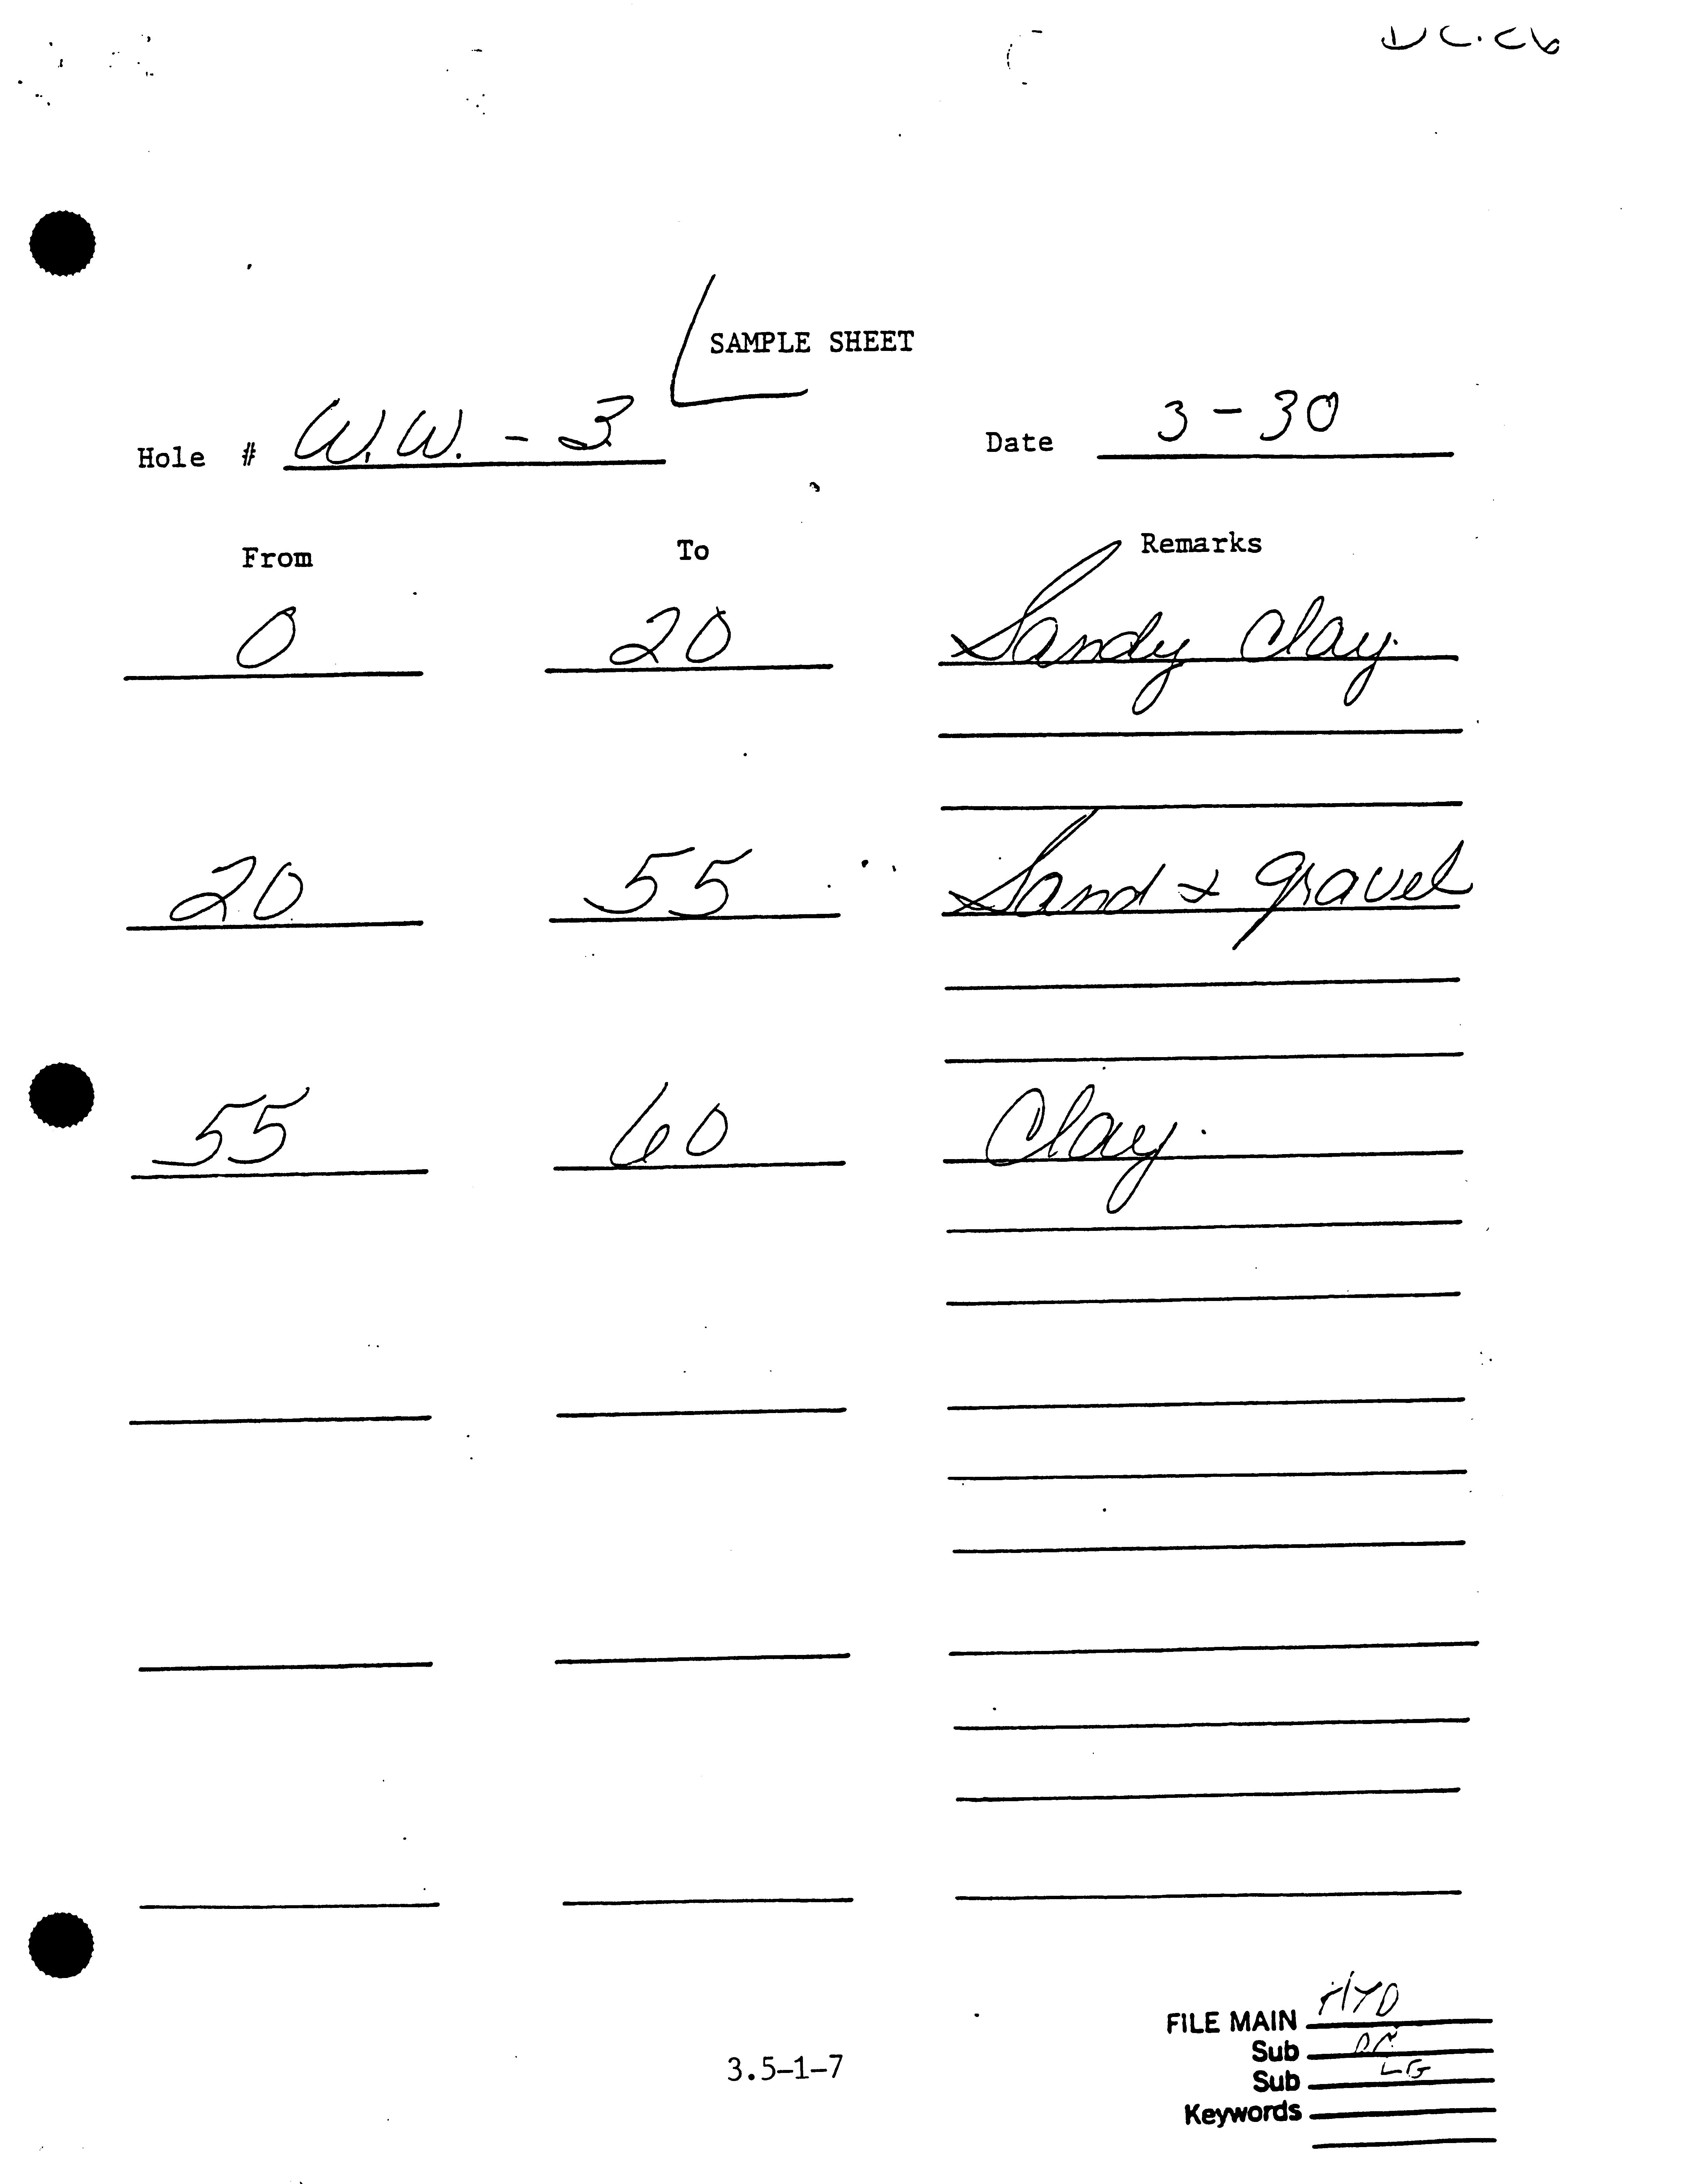 SAMPLE SHEET
Hole # W.W. - 3 Date 3-30
From To Remarks
0 20 Sandy Clay.
20 55 Sand & gravel
55 60 Clay.
FILE MAIN HYD
Sub
3.5-1-7
Sub LG
Keywords